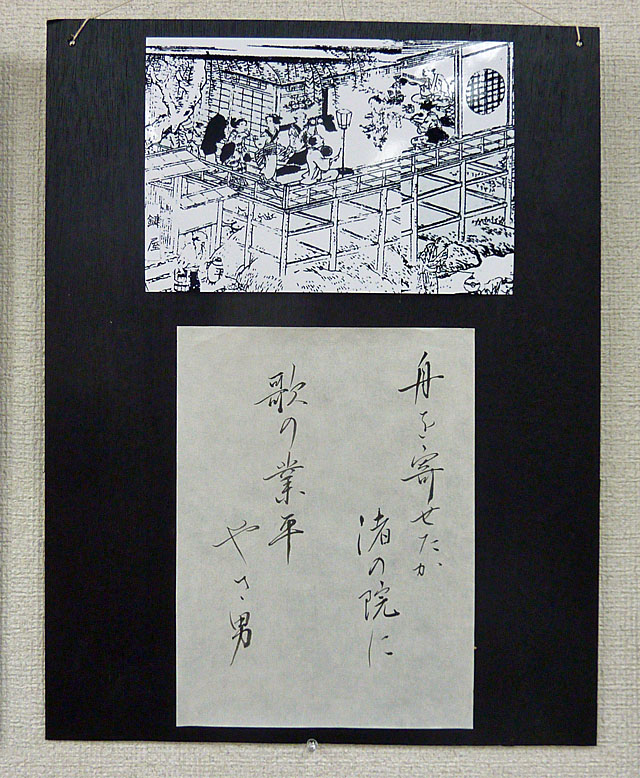 鍵屋
舟を寄せたか
渚の院に
歌の業平
やさ男